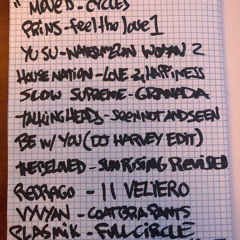 " MOVE D - CYCLES
PRINS - feel the love 1
YU SU - WATERMELON WOMAN 2
HOUSE NATION - LOVE & HAPPINESS
SLOW SUPREME - GRANADA
TALKING HEADS - SEEN NOT AND SEEN
BE W/ YOU (DJ HARVEY EDIT)
THE BELOVED - SUN RISING REVISED
RED RAGO - II VELIERO
VYVYAN - COATBRA PANTS
PLASMIK - FULL CIRCLE